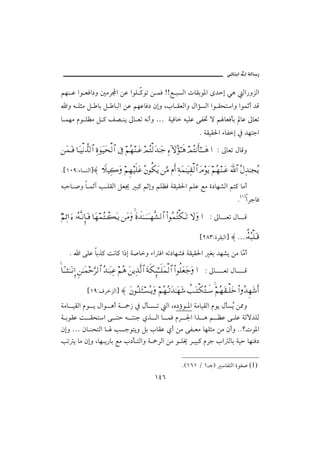 رسالة إلى ابنتي
الزورالتي هي إحدى الموبقات السبع!! فمن توكّلوا عن المجرمين ودافعوا عنهم
قد أثموا واستحقوا السؤال والعقاب، وإن دفاعهم عن الباطل باطل مثله والله
تعالى عالم بأفعالهم لا تخفى عليه خافية ... وأنه تعالى ينصف كل مظلوم مهما
اجتهد في إخفاء الحقيقة .
وقال تعالى : ﴿ هَٰٓأَنتُمْ هَٰٓؤُلَآءِ جَٰدَلْتُمْ عَنْهُمْ فِى ٱلْحَيَوٰةِ ٱلدُّنْيَا فَمَن
يُجَٰدِلُ ٱللَّهَ عَنْهُمْ يَوْمَ ٱلْقِيَٰمَةِ أَم مَّن يَكُونُ عَلَيْهِمْ وَكِيلًا ﴾ [النساء:١٠٩].
أما كتم الشهادة مع علم الحقيقة فظلم وإثم كبير يجعل القلب آثماً وصاحبه
فاجراً(١).
قال تعالى : ﴿ وَلَا تَكْتُمُوا۟ ٱلشَّهَٰدَةَ ۚ وَمَن يَكْتُمْهَا فَإِنَّهُۥٓ ءَاثِمٌ
قَلْبُهُۥ ... ﴾ [البقرة:٢٨٣]
أمّا من يشهد بغير الحقيقة فشهادته افتراء وخاصة إذا كانت كذباً على الله .
قال تعالى : ﴿ وَجَعَلُوا۟ ٱلْمَلَٰٓئِكَةَ ٱلَّذِينَ هُمْ عِبَٰدُ ٱلرَّحْمَٰنِ إِنَٰثًا ۚ
أَشَهِدُوا۟ خَلْقَهُمْ ۚ سَتُكْتَبُ شَهَٰدَتُهُمْ وَيُسْـَٔلُونَ ﴾ [الزخرف:١٩]
ومن يُسأل يوم القيامة الموؤده، التي تسأل في زحمة أهوال يوم القيامة
للدلالة على عظم هذا الجرم فما الذي جنته حتى استحقت عقوبة
الموت؟.. وأن من مثلها معفى من أي عقاب بل ويتوجب لها التحنان ... وإن
دفنها حية بالتراب جرم كبير يخلو من الرحمة والتأدب مع باريها، وإن ما يترتب
(1) صفوة التفاسير (جـ١ / ١٦١).
١٤٦